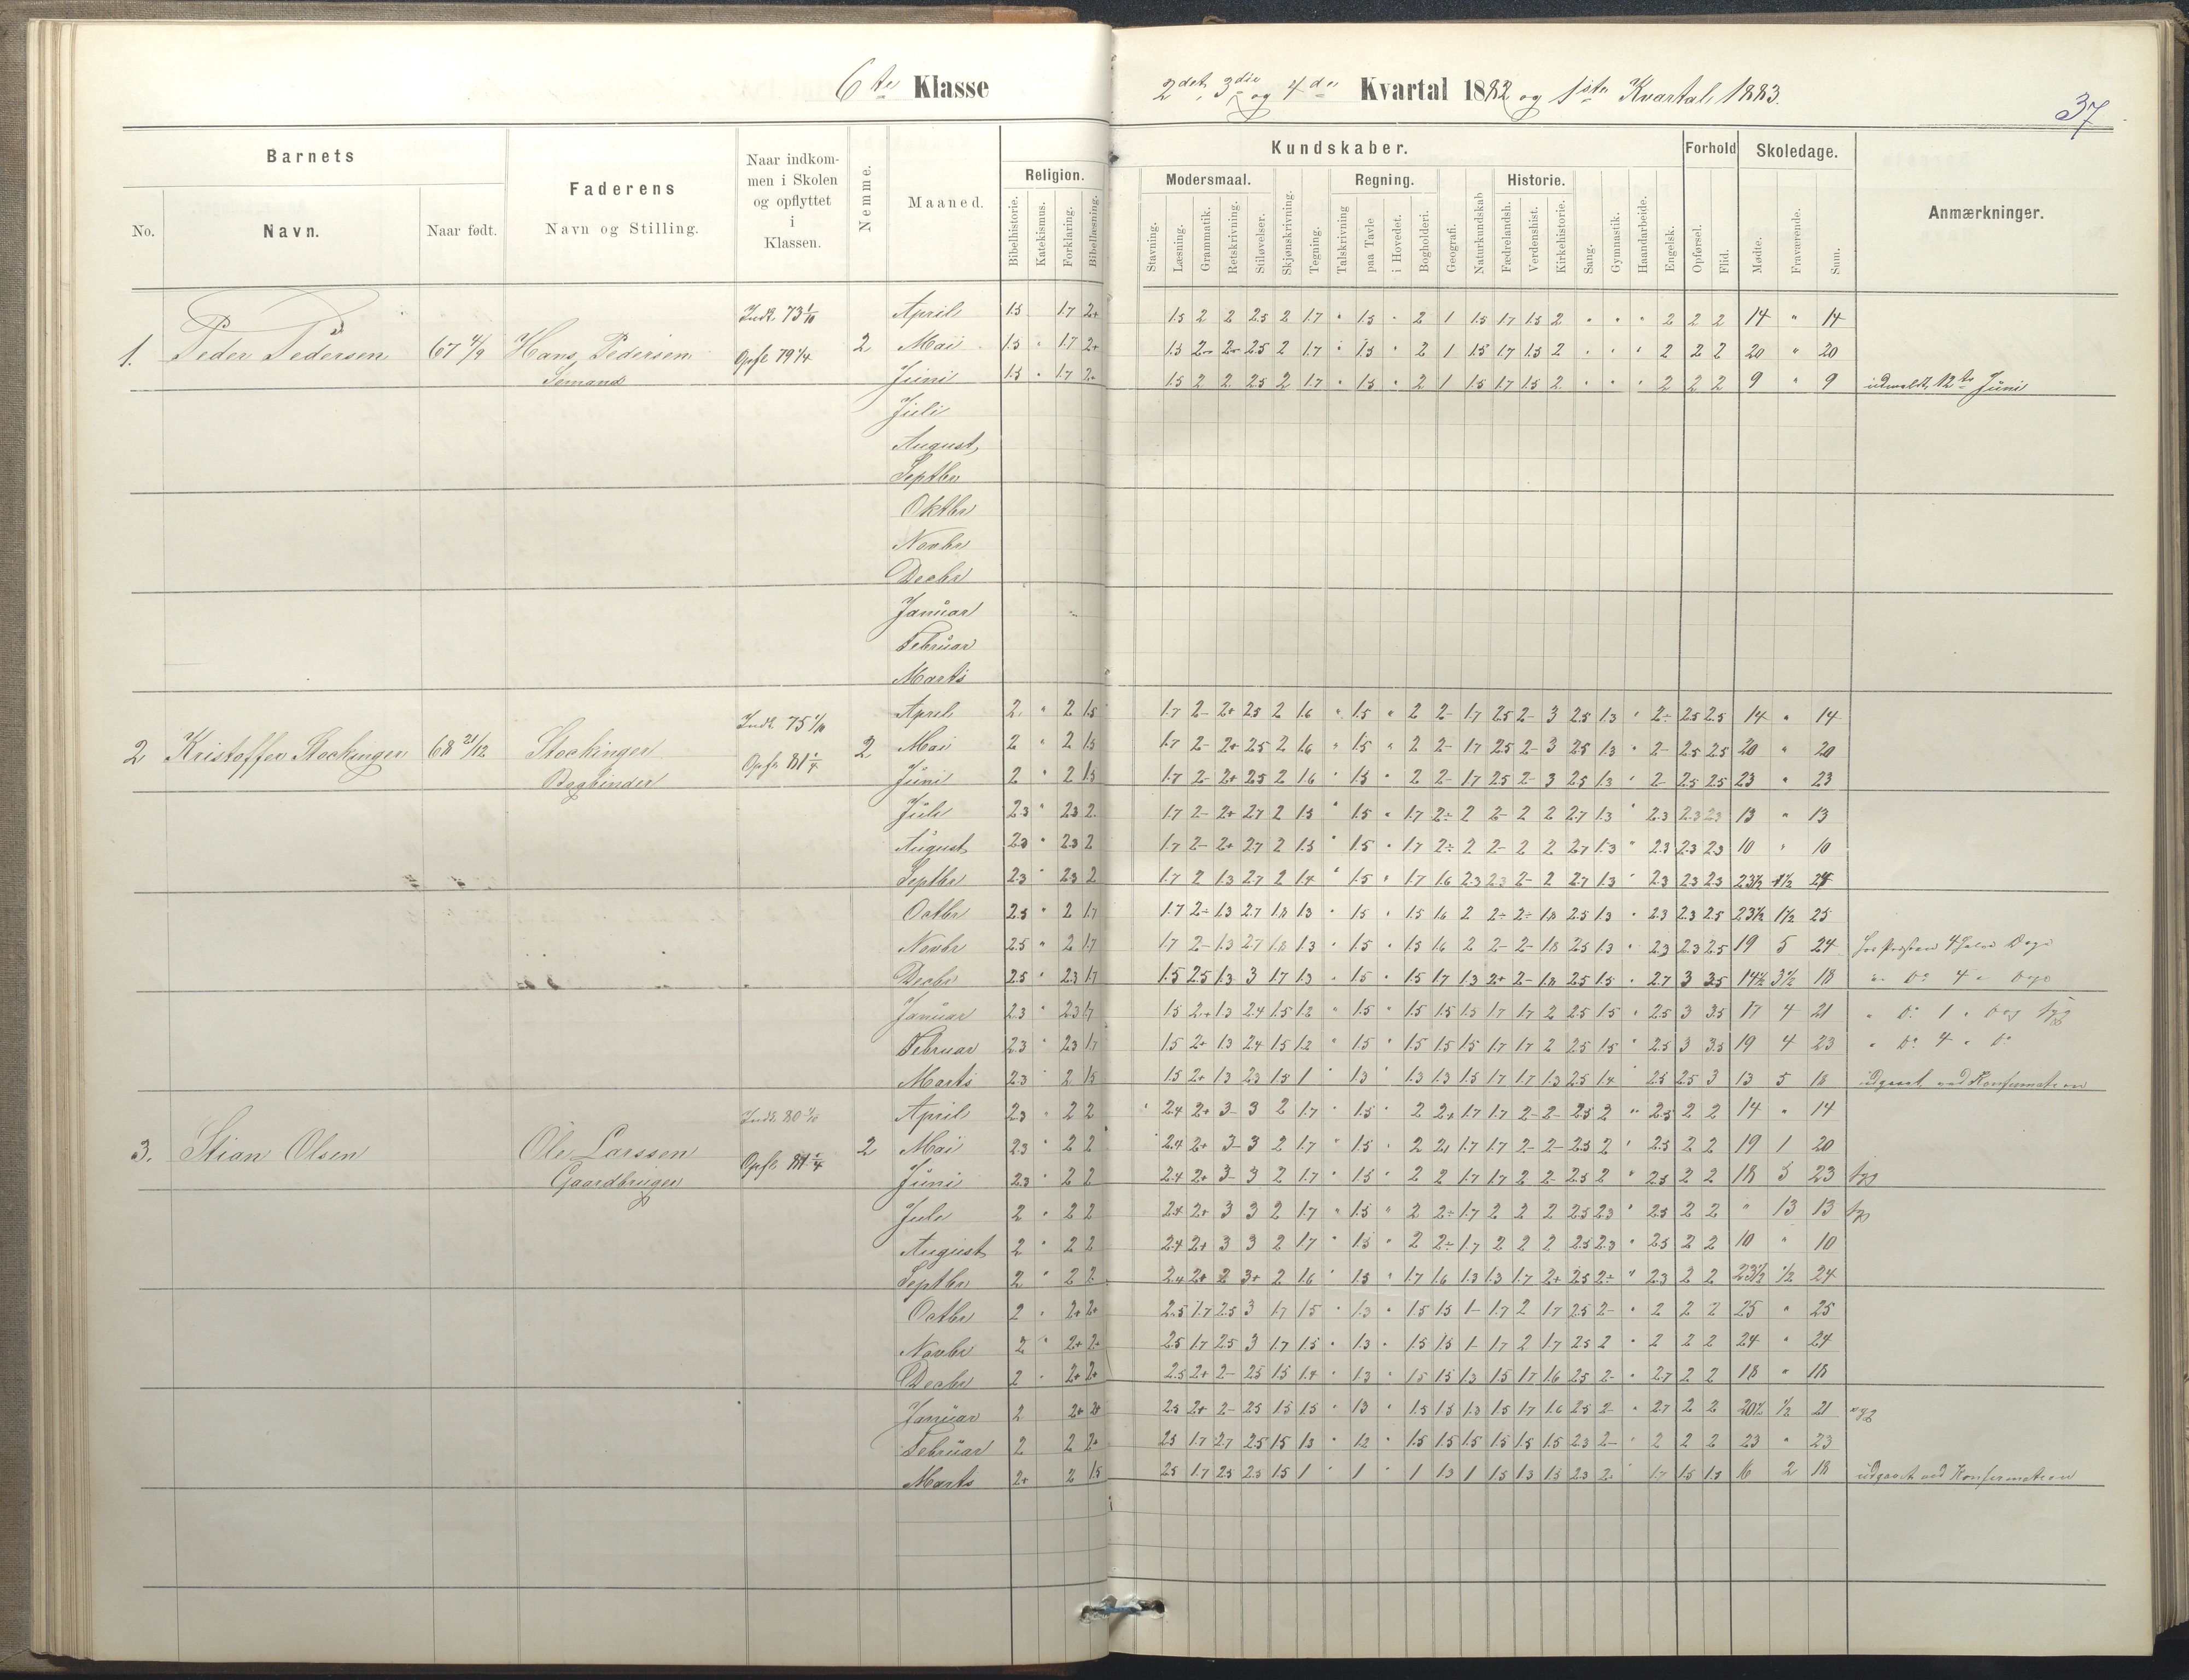 6te Klasse
2det, 3die og 4de Kvartal 1882 og 1ste Kvartal 1883.
37
Barnets
No.
Navn.
Naar født.
Faderens
Navn og Stilling.
Naar indkommen i Skolen og opflyttet i Klassen.
Nemme.
Maaned.
Kundskaber.
Religion.
Bibelhistorie.
Katekismus.
Forklaring.
Bibellæsning.
Modersmaal.
Stavning.
Læsning.
Grammatik.
Retskrivning.
Stiløvelser.
Skjønskrivning.
Tegning.
Regning.
Talskrivning
paa Tavle
i Hovedet.
Bogholderi.
Geografi.
Naturkundskab
Historie.
Fædrelandsh.
Verdenshist.
Kirkehistorie.
Sang.
Gymnastik.
Haandarbeide.
Engelsk.
Forhold
Opførsel.
Flid.
Skoledage.
Mødte.
Fraværende.
Sum.
Anmærkninger.
1. Peder Pedersen 67 4/9 Hans Pedersen
Sømand
Indk. 73 1/10
Opfl. 79 1/4
2
April 1.5 1.7 2+ 1.5 2 2 2.5 2 1.7 " 1.5 " 2 1 1.5 1.7 1.5 2 " " " 2 2 2 14 " 14
Mai 1.5 " 1.7 2+ 1.5 2- 2- 2.5 2 1.7 " 1.5 " 2 1 1.5 1.7 1.5 2 " " " 2 2 2 20 " 20
Juni 1.5 " 1.7 2+ 1.5 2 2 2.5 2 1.7 " 1.5 " 2 1 1.5 1.7 1.5 2 " " " 2 2 2 9 " 9 udmeldt 12te Juni
Juli
August
Septbr
Oktbr
Novbr
Decbr
Januar
Februar
Marts
2 Kristoffer Stockinger 68 21/12 Stockinger
Bogbinder
Indk. 75 1/10
Opfl. 81 1/4
2
April 2 " 2 1.5 1.7 2- 2+ 2.5 2 1.6 " 1.5 " 2 2- 1.7 2.5 2- 3 2.5 1.3 " 2- 2.5 2.5 14 " 14
Mai 2 " 2 1.5 1.7 2- 2+ 2.5 2 1.6 " 1.5 " 2 2- 1.7 2.5 2- 3 2.5 1.3 " 2- 2.5 2.5 20 " 20
Juni 2 " 2 1.5 1.7 2- 2+ 2.5 2 1.6 " 1.5 " 2 2- 1.7 2.5 2- 3 2.5 1.3 " 2- 2.5 2.5 23 " 23
Juli 2.3 " 2.3 2 1.7 2- 2+ 2.7 2 1.5 " 1.5 " 1.7 2- 2 2- 2 2 2.7 1.3 " 2.3 2.3 2.3 13 " 13
August 2.3 " 2.3 2 1.7 2- 2+ 2.7 2 1.5 " 1.5 " 1.7 2- 2 2- 2 2 2.7 1.3 " 2.3 2.3 2.3 10 " 10
Septbr 2.3 " 2.3 2 1.7 2 1.3 2.7 2 1.4 " 1.5 " 1.7 1.6 2.3 2.3 2- 2 2.7 1.3 " 2.3 2.3 2.5 23½ ½ 24
Octbr 2.5 " 2 1.7 1.7 2- 1.3 2.7 1.8 1.3 " 1.5 " 1.5 1.6 2 2- 2- 1.8 2.5 1.3 " 2.3 2.3 2.5 23½ 1½ 25
Novbr 2.5 " 2 1.7 1.7 2- 1.3 2.7 1.8 1.3 " 1.5 " 1.5 1.6 2 2- 2- 1.8 2.5 1.3 " 2.3 2.3 2.5 19 5 24 hos Præsten 4 halve Dage
Decbr 2.5 " 2.3 1.7 1.5 2.5 1.3 3 1.7 1.3 " 1.5 " 1.5 1.7 1.3 2+ 2- 1.8 2.5 1.5 " 2.7 3 3.5 14½ 3½ 18 " Do 4 " Dage
Januar 2.3 " 2.3 1.7 1.5 2+ 1.3 2.4 1.5 1.2 " 1.5 " 1.5 1.5 1.5 1.7 1.7 2 2.5 1.5 " 2.5 3 3.5 17 4 21 " Do 1 " Dag syg
Februar 2.3 " 2.3 1.7 1.5 2+ 1.3 2.4 1.5 1.2 " 1.5 " 1.5 1.5 1.5 1.7 1.7 2 2.5 1.5 " 2.5 3 3.5 19 4 23 " Do 4 " Do
Marts 2.3 " 2 1.5 1.5 2+ 1.3 2.3 1.5 1 " 1.3 " 1.3 1.3 1.5 1.7 1.7 1.3 2.5 1.4 " 2.5 2.5 3 13 5 18 udgaaet ved Konfirmationen
3. Stian Olsen Ole Larssen
Gaardbruger
Indk. 80 1/10
Opfl. 81 1/4
2
April 2.3 " 2 2 2.4 2+ 3- 3 2 1.7 " 1.5 " 2 2+ 1.7 1.7 2- 2- 2.5 2 " 2.5 2 2 14 " 14
Mai 2.3 " 2 2 2.4 2+ 3- 3 2 1.7 " 1.5 " 2 2+ 1.7 1.7 2- 2- 2.5 2 " 2.5 2 2 19 1 20
Juni 2.3 " 2 2 2.4 2+ 3- 3 2 1.7 " 1.5 " 2 2 1.7 1.7 2 2- 2.5 2 " 2.5 2 2 18 5 23 syg
Juli 2 " 2 2 2.4 2+ 3 3 2 1.7 " 1.5 " 2 2- 1.7 2 2 2 2.5 2.3 " 2.5 2 2 " 13 13 syg
August 2 " 2 2 2.4 2+ 3 3 2 1.7 " 1.5 " 2 2- 1.7 2 2 2 2.5 2.3 " 2.5 2 2 10 " 10
Septbr 2 " 2 2 2.4 2+ 2 3+ 2 1.6 " 1.5 " 1.7 1.6 1.3 1.3 1.7 2+ 2.5 2- " 2.3 2 2 23½ ½ 24
Octbr 2 " 2+ 2+ 2.5 1.7 2.5 3 1.7 1.5 " 1.3 " 1.5 1.5 1- 1.7 2 1.7 2.5 2- " 2 2 2 25 " 25
Novbr 2 " 2+ 2- 2.5 1.7 2.5 3 1.7 1.5 " 1.3 " 1.5 1.5 1- 1.7 2 1.7 2.5 2 " 2 2 2 24 " 24
Decbr 2 " 2+ 2+ 2.5 2+ 2- 2.5 1.5 1.4 " 1.3 " 1.5 1.5 1.3 1.5 1.7 1.6 2.5 2- " 2.7 2 2 18 " 18
Januar 2 2+ 2+ 2.5 2+ 2- 2.5 1.5 1.5 " 1.3 " 1.5 1.5 1.3 1.5 1.7 1.6 2.5 2- " 2.7 2 2 20½ ½ 21 syg
Februar 2 2 2+ 2.5 1.7 2.7 2.5 1.5 1.3 " 1.2 " 1.5 1.5 1.5 1.5 1.5 1.5 2.3 2- " 2 2 2 23 " 23
Marts 2+ 2 1.5 2.5 1.7 2.5 2.3 1.5 1 " 1 " 1 1.3 1 1.5 1.3 1.5 2.3 2- " 1.7 1.5 1.5 16 2 18 udgaaet ved Konfirmationen